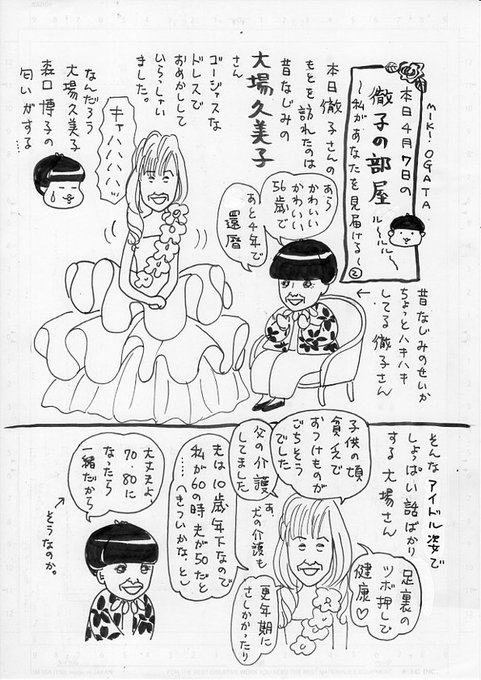 MIKI! OGATA
本日4月7日の
徹子の部屋
ルールル
ルールル〜
〜私があなたを見届ける〜②
本日徹子さんの
もとを訪れたのは
昔なじみの
大場久美子
さん
ゴージャスな
ドレスで
おめかしして
いらっしゃい
ました。
キャハハハハッ
なんだろう
大場久美子
森口博子の
匂いがする…
あら
かわいい
かわいい
56歳で
あと4年で
還暦
昔なじみのせいか
ちょっとハキハキ
してる徹子さん
←
そんなアイドル姿で
しょっぱい話ばかり
する大場さん
子供の頃
貧乏で
おつけものが
ごちそう
でした
父の介護
してました
あ、犬の介護も
足裏の
ツボ押しで
健康♡
更年期に
さしかかったり
夫は10歳年下なので
私が60の時夫が50だと
……へきついかな、と。
大丈夫よ、
70、80に
なったら
一緒だから
←そうなのか。